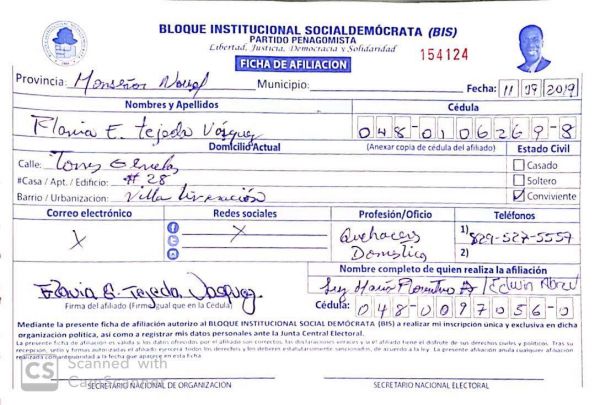 BLOQUE INSTITUCIONAL SOCIALDEMÓCRATA (BIS)
PARTIDO PEÑAGOMISTA
Libertad, Justicia, Democracia y Solidaridad
154124
FICHA DE AFILIACION
Provincia: Monseñor Nouel Municipio: Fecha: 11 / 09 / 2019
Nombres y Apellidos Cédula
Flavia E. Tejeda Vásquez 048-0106269-8
Domicilio Actual (Anexar copia de cédula del afiliado) Estado Civil
Calle: Casado
#Casa / Apt. / Edificio: # 28 Soltero
Barrio / Urbanización: Villa Liberación Conviviente
Correo electrónico Redes sociales Profesión/Oficio Teléfonos
X X Quehaceres 1) 829-527-5557
Domestico 2)
Nombre completo de quien realiza la afiliación
Flavia E. Tejeda Vasquez Luz María Florentino / Edwin Abreu
Firma del afiliado (Firma igual que en la Cédula) Cédula: 048-0097056-0
Mediante la presente ficha de afiliación autorizo al BLOQUE INSTITUCIONAL SOCIAL DEMÓCRATA (BIS) a realizar mi inscripción única y exclusiva en dicha
organización política, así como a registrar mis datos personales ante la Junta Central Electoral.
La presente ficha de afiliación es válida si los datos ofrecidos por el afiliado son correctos, las declaraciones veraces y si el afiliado tiene el disfrute de sus derechos civiles y políticos. Tras su
recepción, serio y firmas autorizadas el afiliado ejercerá todos los derechos y los deberes estatutariamente sancionados, de acuerdo a la ley. La presente afiliación anula cualquier afiliación
realizada con anterioridad a la fecha que aparece en esta ficha.
CS Scanned with
CamScanner
SECRETARIO NACIONAL DE ORGANIZACIÓN SECRETARIO NACIONAL ELECTORAL